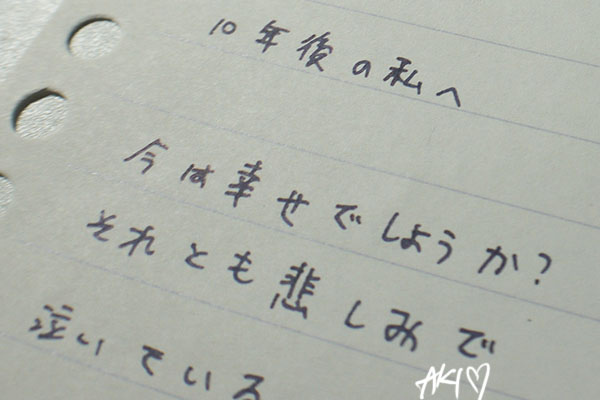 10年後の私へ
今は幸せでしようか?
それとも悲しみで
泣いている
AKI♡